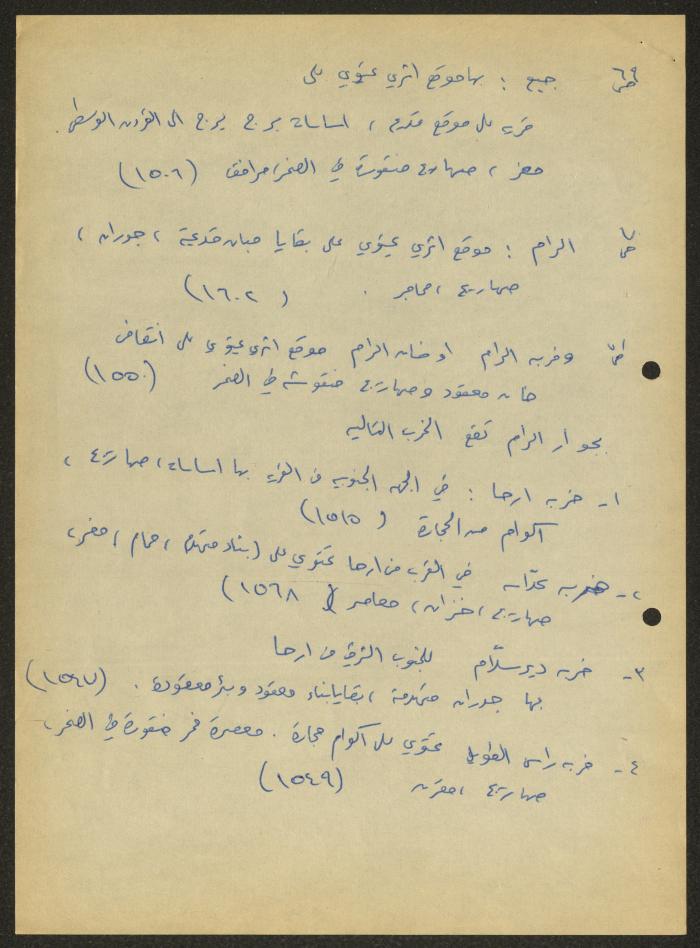 ص ٦٩ جبع : بها موقع اثري يحتوي على
قريه على موقع قديم ، اساسات برج يرجع الى القرون الوسطى .
مغر ، صهاريج منقورة في الصخر، مرافق (١٥٠٦)
ص الرام : موقع اثري يحتوي على بقايا مبان قديمة ، جدران ،
صهاريج ، محاجر . (١٦٠٢)
ص وخربه الرام او خان الرام موقع اثري يحتوي على انقاض
خان معقود وصهاريج منقوشه في الصخر (١٥٥٠)
بجوار الرام تقع الخرب التاليه
١- خربه ارحا : في الجهه الجنوبيه من القريه بها اساسات ، صهاريج ،
اكوام من الحجارة (١٥١٥)
٢- خربه عدّاسه في الغرب من ارحا تحتوي على (بناء متهدم ، حمام ، مغر ،
صهاريج ، خزان ، معاصر (١٥٦٨)
٣- خربه دير سلّام للجنوب الشرقي من ارحا
بها جدران متهدمة ، بقايا بناء معقود وبئر معقودة . (١٥٤٧)
٤- خربه راس الطويل تحتوي على اكوام حجارة . معصرة خمر منقورة في الصخر ،
صهاريج ، مغر (١٥٤٩)